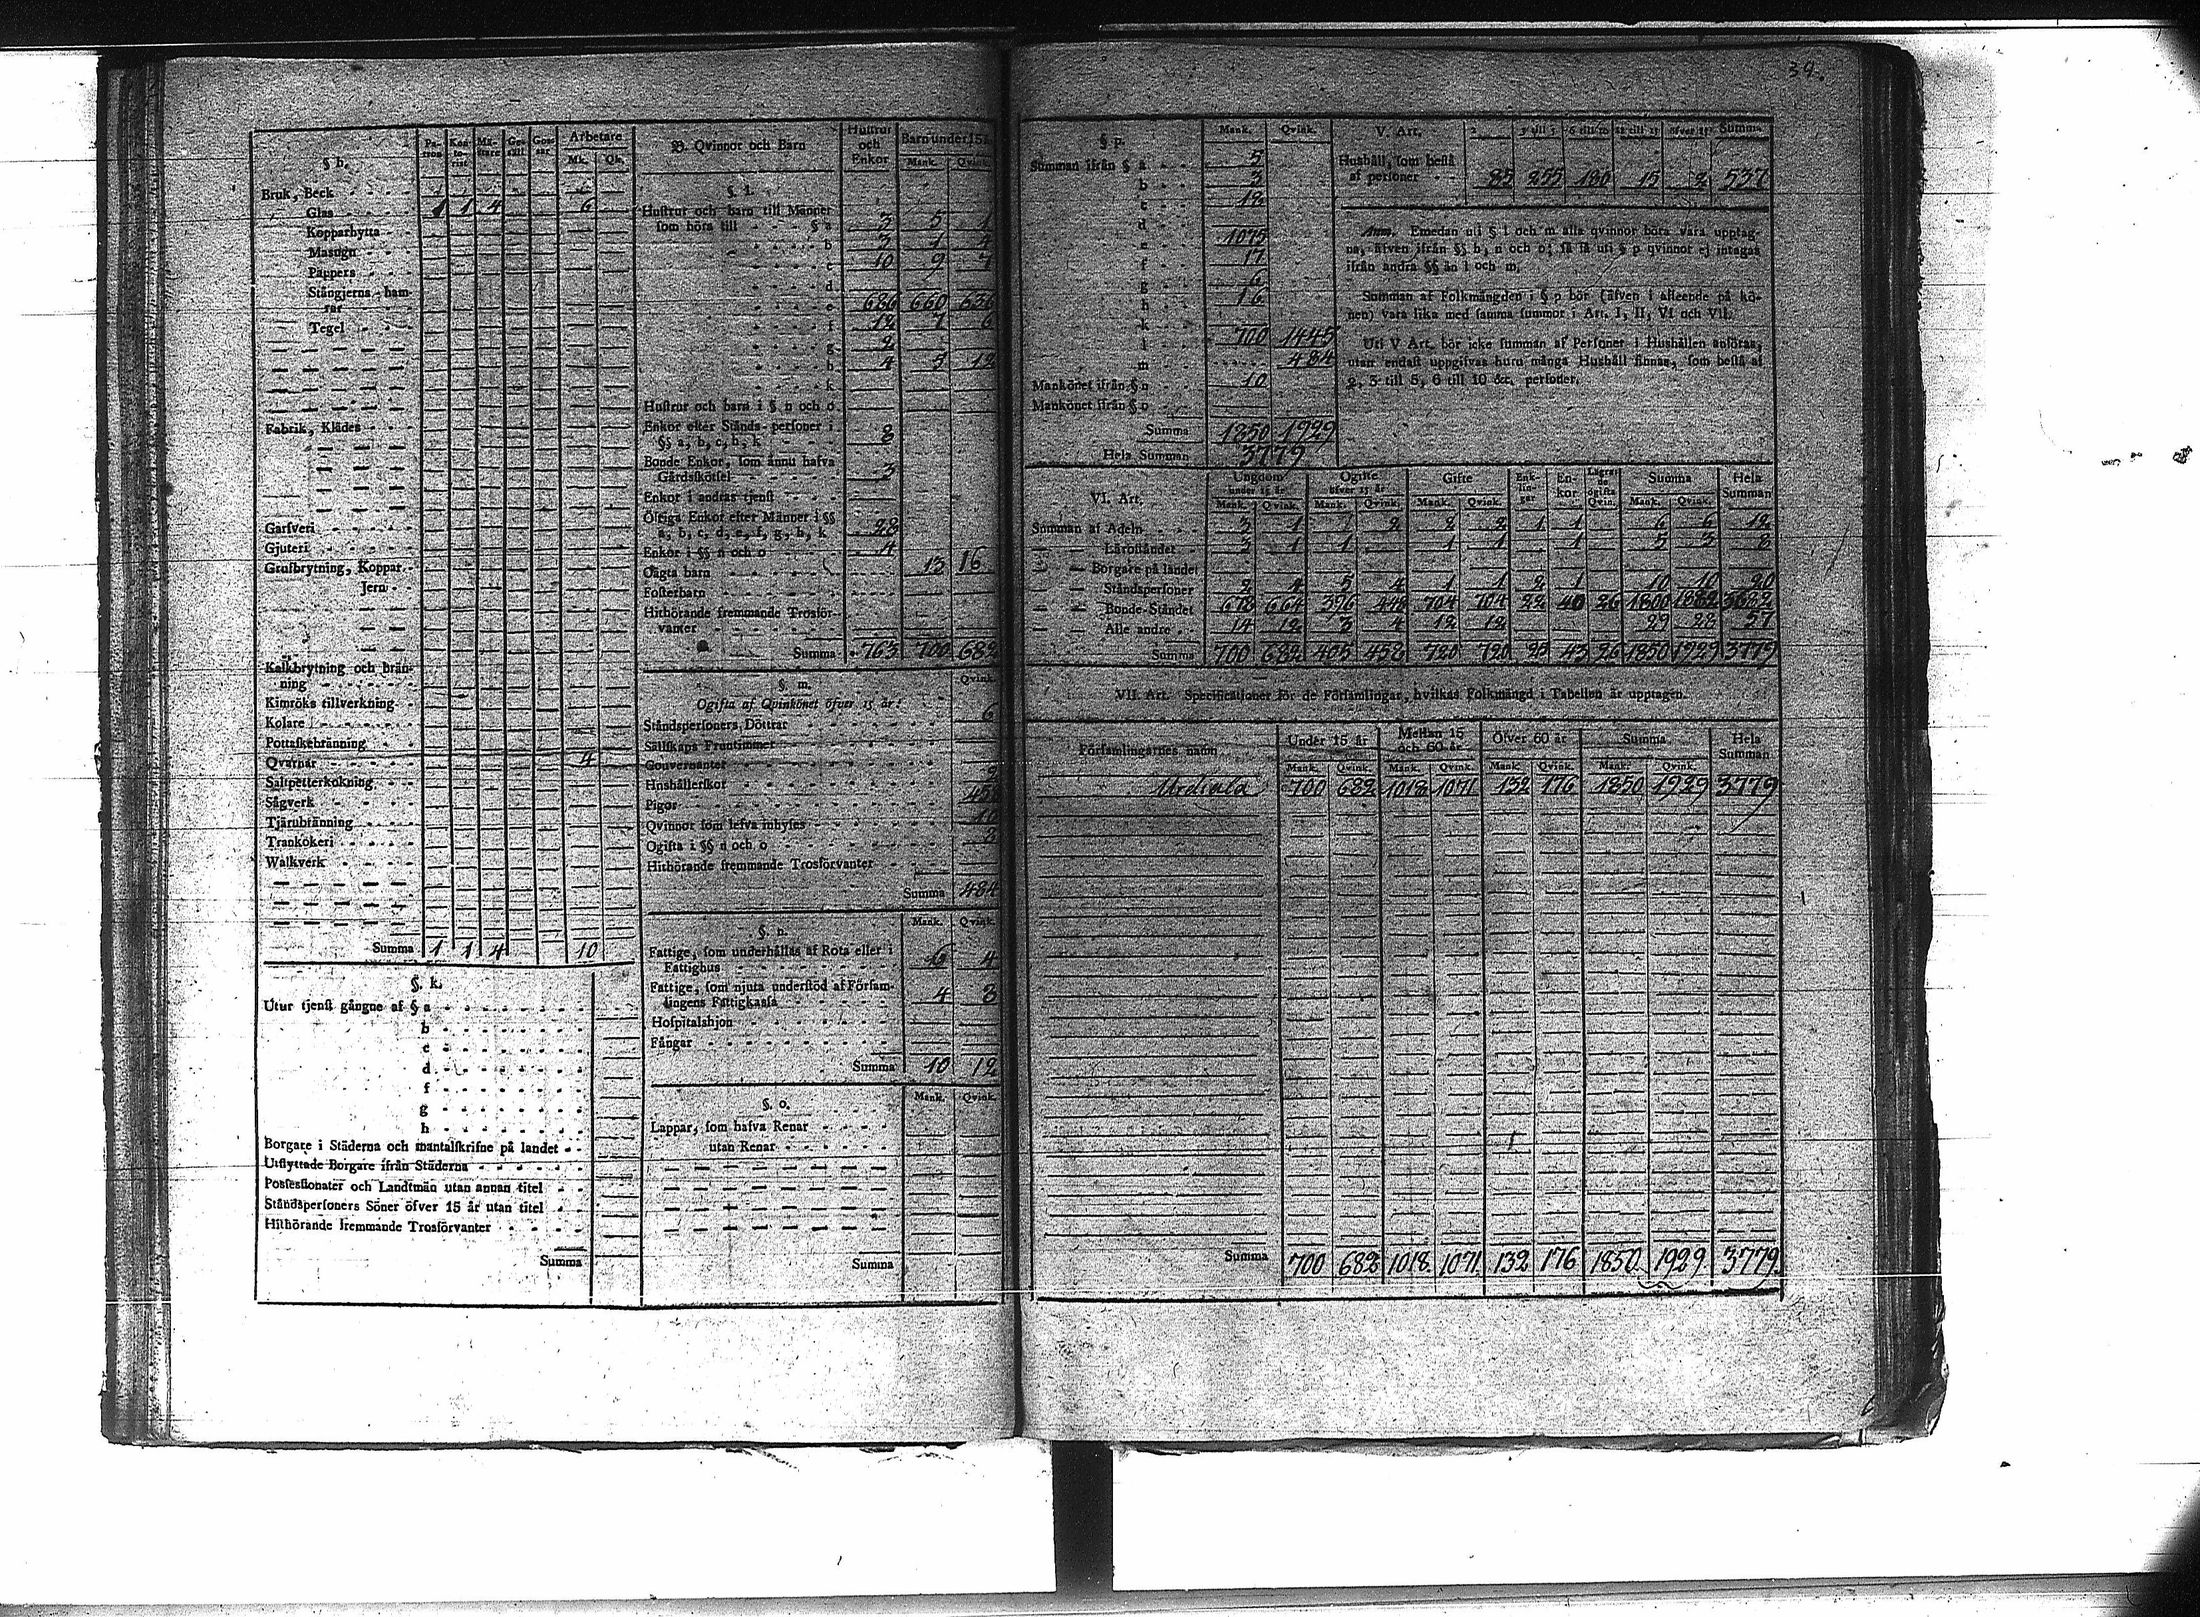 39.
§ h.
Pa-
tron
Kon-
to-
rist
Mä-
stare
Ge-
säll
Gos-
sar
Arbetare
Mk.
Qk.
Bruk, Beck
Glas 1 1 4 6
Kopparhytta
Masugn
Pappers
Stångjerns-ham-
rar
Tegel
Fabrik, Klädes
Garfveri
Gjuteri
Grufbrytning, Koppar
Jern
Kalkbrytning och brän-
ning
Kimröks tillverkning
Kolare
Pottaskebränning
Qvarnar 4
Saltpetterkokning
Sågverk
Tjärubränning
Trankokeri
Walkverk
Summa 1 1 4 10
§. k.
Utur tjenst gångne af § a
b
c
d
f
g
h
Borgare i Städerna och mantalskrifne på landet
Utflyttade Borgare ifrån Städerna
Possessionater och Landtmän utan annan titel
Ståndspersoners Söner öfver 15 år utan titel
Hithörande fremmande Trosförvanter
Summa
B. Qvinnor och Barn
Hustrur
och
Enkor
Barn under 15 år
Mank.
Qvink.
§ l.
Hustrur och barn till Männer
som höra till § a 3 5 1
b 3 1 4
c 10 9 7
d
e 686 660 636
f 12 7 6
g 2
h 4 5 12
k
Hustrur och barn i § n och o
Enkor efter Stånds-personer i
§§ a, b, c, h, k 8
Bonde Enkor, som ännu hafva
Gårdsskötsel 3
Enkor i andras tjenst
Öfriga Enkor efter Männer i §§
a, b, c, d, e, f, g, h, k 28
Enkor i §§ n och o 4
Oägta barn 13 16
Fosterbarn
Hithörande fremmande Trosför-
vanter
Summa 763 700 682
§. m.
Qvink.
Ogifta af Qvinkönet öfver 15 år:
Ståndspersoners Döttrar 6
Sällskaps Fruntimmer
Gouvernanter
Hushållerskor 2
Pigor
Qvinnor som lefva inhyses 10
Ogifta i §§ n och o 8
Hithörande fremmande Trosförvanter
Summa 484
Mank.
Qvink.
§. n.
Fattige, som underhållas af Rota eller i
Fattighus 6 4
Fattige, som njuta understöd af Försam-
lingens Fattigkassa 4 8
Hospitalshjon
Fångar
Summa 10 12
Mank.
Qvink.
§. o.
Lappar, som hafva Renar
utan Renar
Summa
§ p.
Mank.
Qvink.
Summan ifrån § a 5
b 3
c 18
d
e 1075
f 17
g 6
h 16
k
l 700 1445
m 484
Mankönet ifrån § n 10
Mankönet ifrån § o
Summa 1850 1929
Hela Summan 3779
V. Art.
2
3 till 5
6 till 10
11 till 15
öfver 15
Summa
Hushåll, som bestå
af personer 85 255 180 15 2 537
Anm. Emedan uti § l och m alla qvinnor böra vara upptag-
na, äfven ifrån §§ b, n och o; så få uti § p qvinnor ej intagas
ifrån andra §§ än l och m.
Summan af Folkmängden i § p bör (äfven i afseende på kö-
nen) vara lika med samma summor i Art. I, II, VI och VII.
Uti V Art. bör icke summan af Personer i Hushållen anföras,
utan endast uppgifvas huru många Hushåll finnas, som bestå af
2, 3 till 5, 6 till 10 &c. personer.
VI. Art.
Ungdom
under 15 år
Ogifte
öfver 15 år
Gifte
Enk-
lin-
gar
En-
kor
Lägrade
ogifta
Qvin.
Summa
Hela
Summan
Mank. Qvink. Mank. Qvink. Mank. Qvink. Mank. Qvink.
Summan af Adeln 3 1 2 2 2 1 1 6 6 12
Läroståndet 3 1 1 1 1 1 5 3 8
Borgare på landet
Ståndspersoner 2 4 5 4 1 1 2 1 10 10 20
Bonde-Ståndet 678 664 396 448 704 704 22 40 26 1800 1882 3682
Alle andre 14 12 3 4 12 12 29 28 57
Summa 700 682 405 458 720 720 25 43 26 1850 1929 3779
VII. Art. Specificationer för de Församlingar, hvilkas Folkmängd i Tabellen är upptagen.
Församlingarnes namn
Under 15 år
Mellan 15
och 60 år
Öfver 60 år
Summa
Hela
Summan
Mank. Qvink. Mank. Qvink. Mank. Qvink. Mank. Qvink.
Urdiala 700 682 1018 1071 132 176 1850 1929 3779
Summa 700 682 1018. 1071. 132 176 1850. 1929 3779.